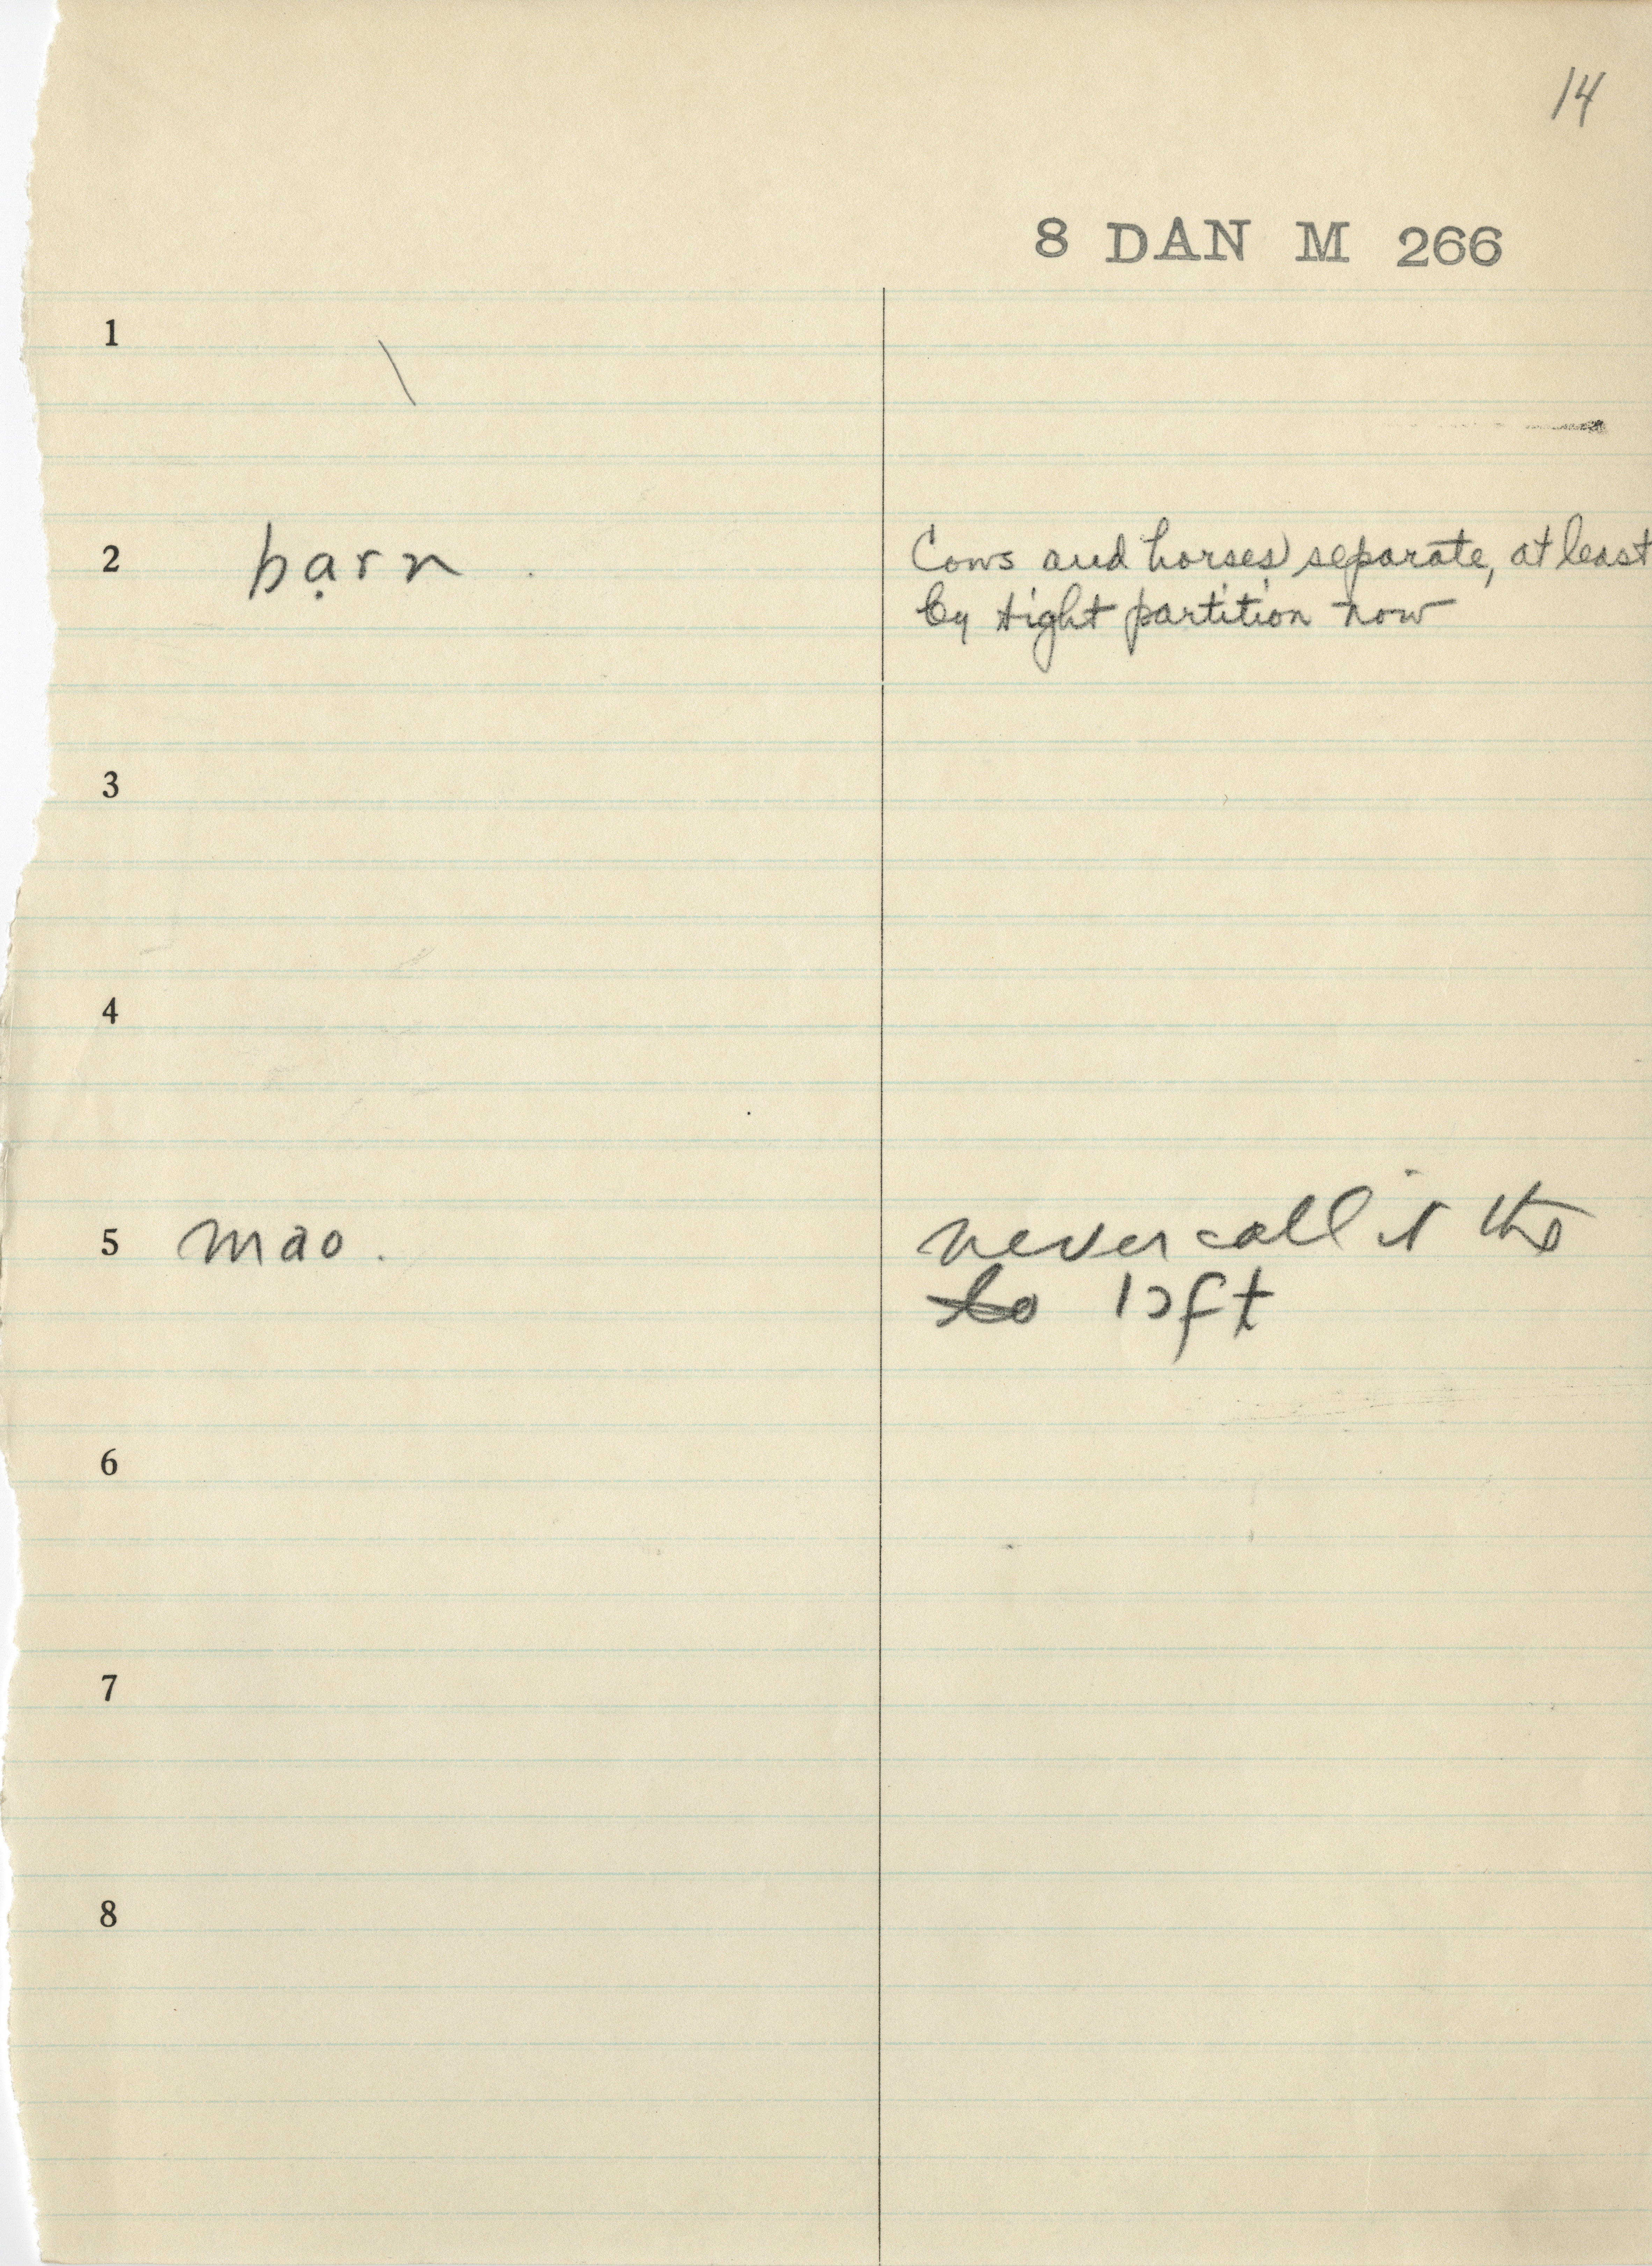 14
8 DAN M 266
1 \
2 bạrn . Cows and horses) separate, at least
by tight partition now
3
4
5 mao . never call it the
lo lɔft
6
7
8